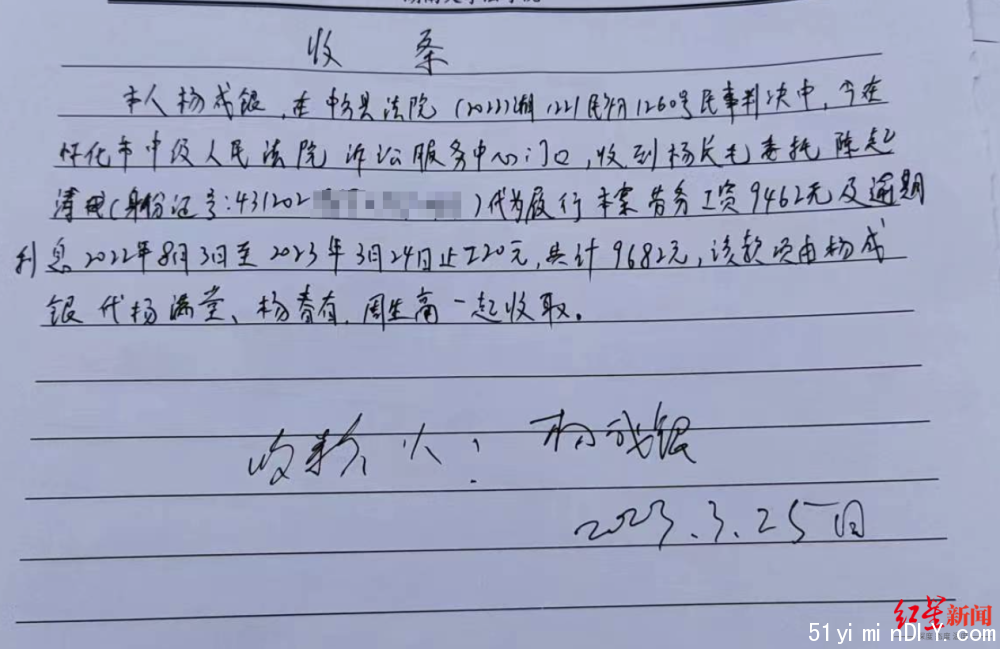 收 条
本人杨成银,在中方县法院(2022)湘1221民初1260号民事判决中,今在
怀化市中级人民法院诉讼服务中心门口,收到杨长毛委托陈起
(身份证号:431202 )代为履行本案劳务工资9462元及逾期
利息2022年8月3日至2023年3月24日止220元,共计9682元,该款项由杨成
银代杨满堂、杨春有、周生高一起收取。
收款人:杨成银
2023.3.25日
红星新闻
51yiminDIY.com